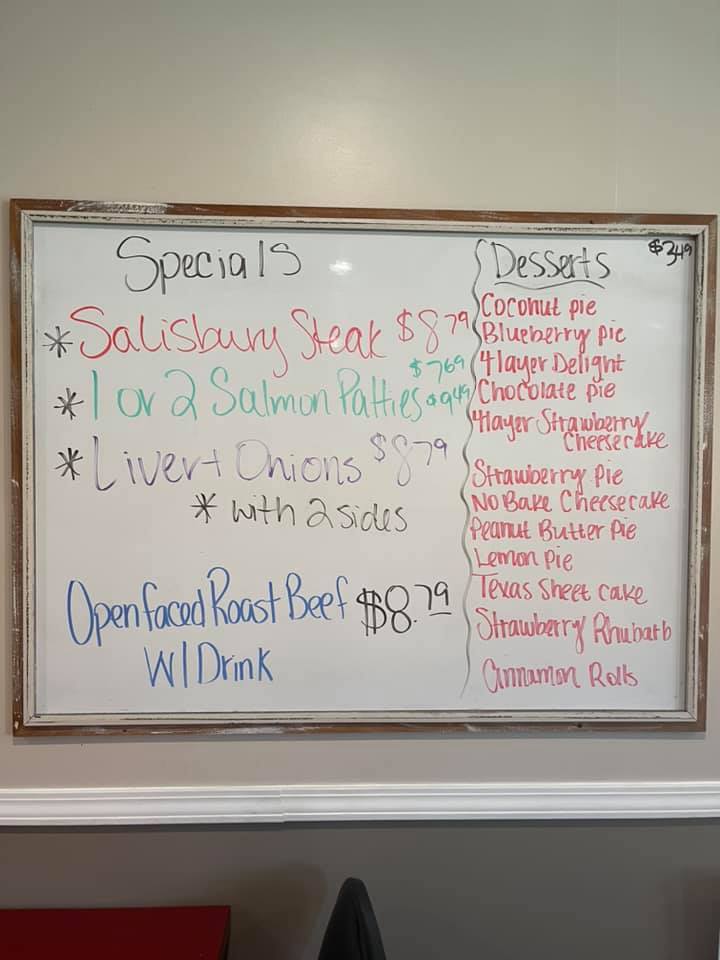 Specials
* Salisbury Steak $8 79
* 1 or 2 Salmon Patties $7 69 $9 49
* Liver + Onions $8 79
* with 2 sides
Open faced Roast Beef $8.79
W/ Drink
Desserts $3 49
Coconut pie
Blueberry pie
4 layer Delight
Chocolate pie
4 layer Strawberry
Cheesecake
Strawberry Pie
No Bake Cheesecake
Peanut Butter Pie
Lemon Pie
Texas Sheet cake
Strawberry Rhubarb
Cinnamon Rolls